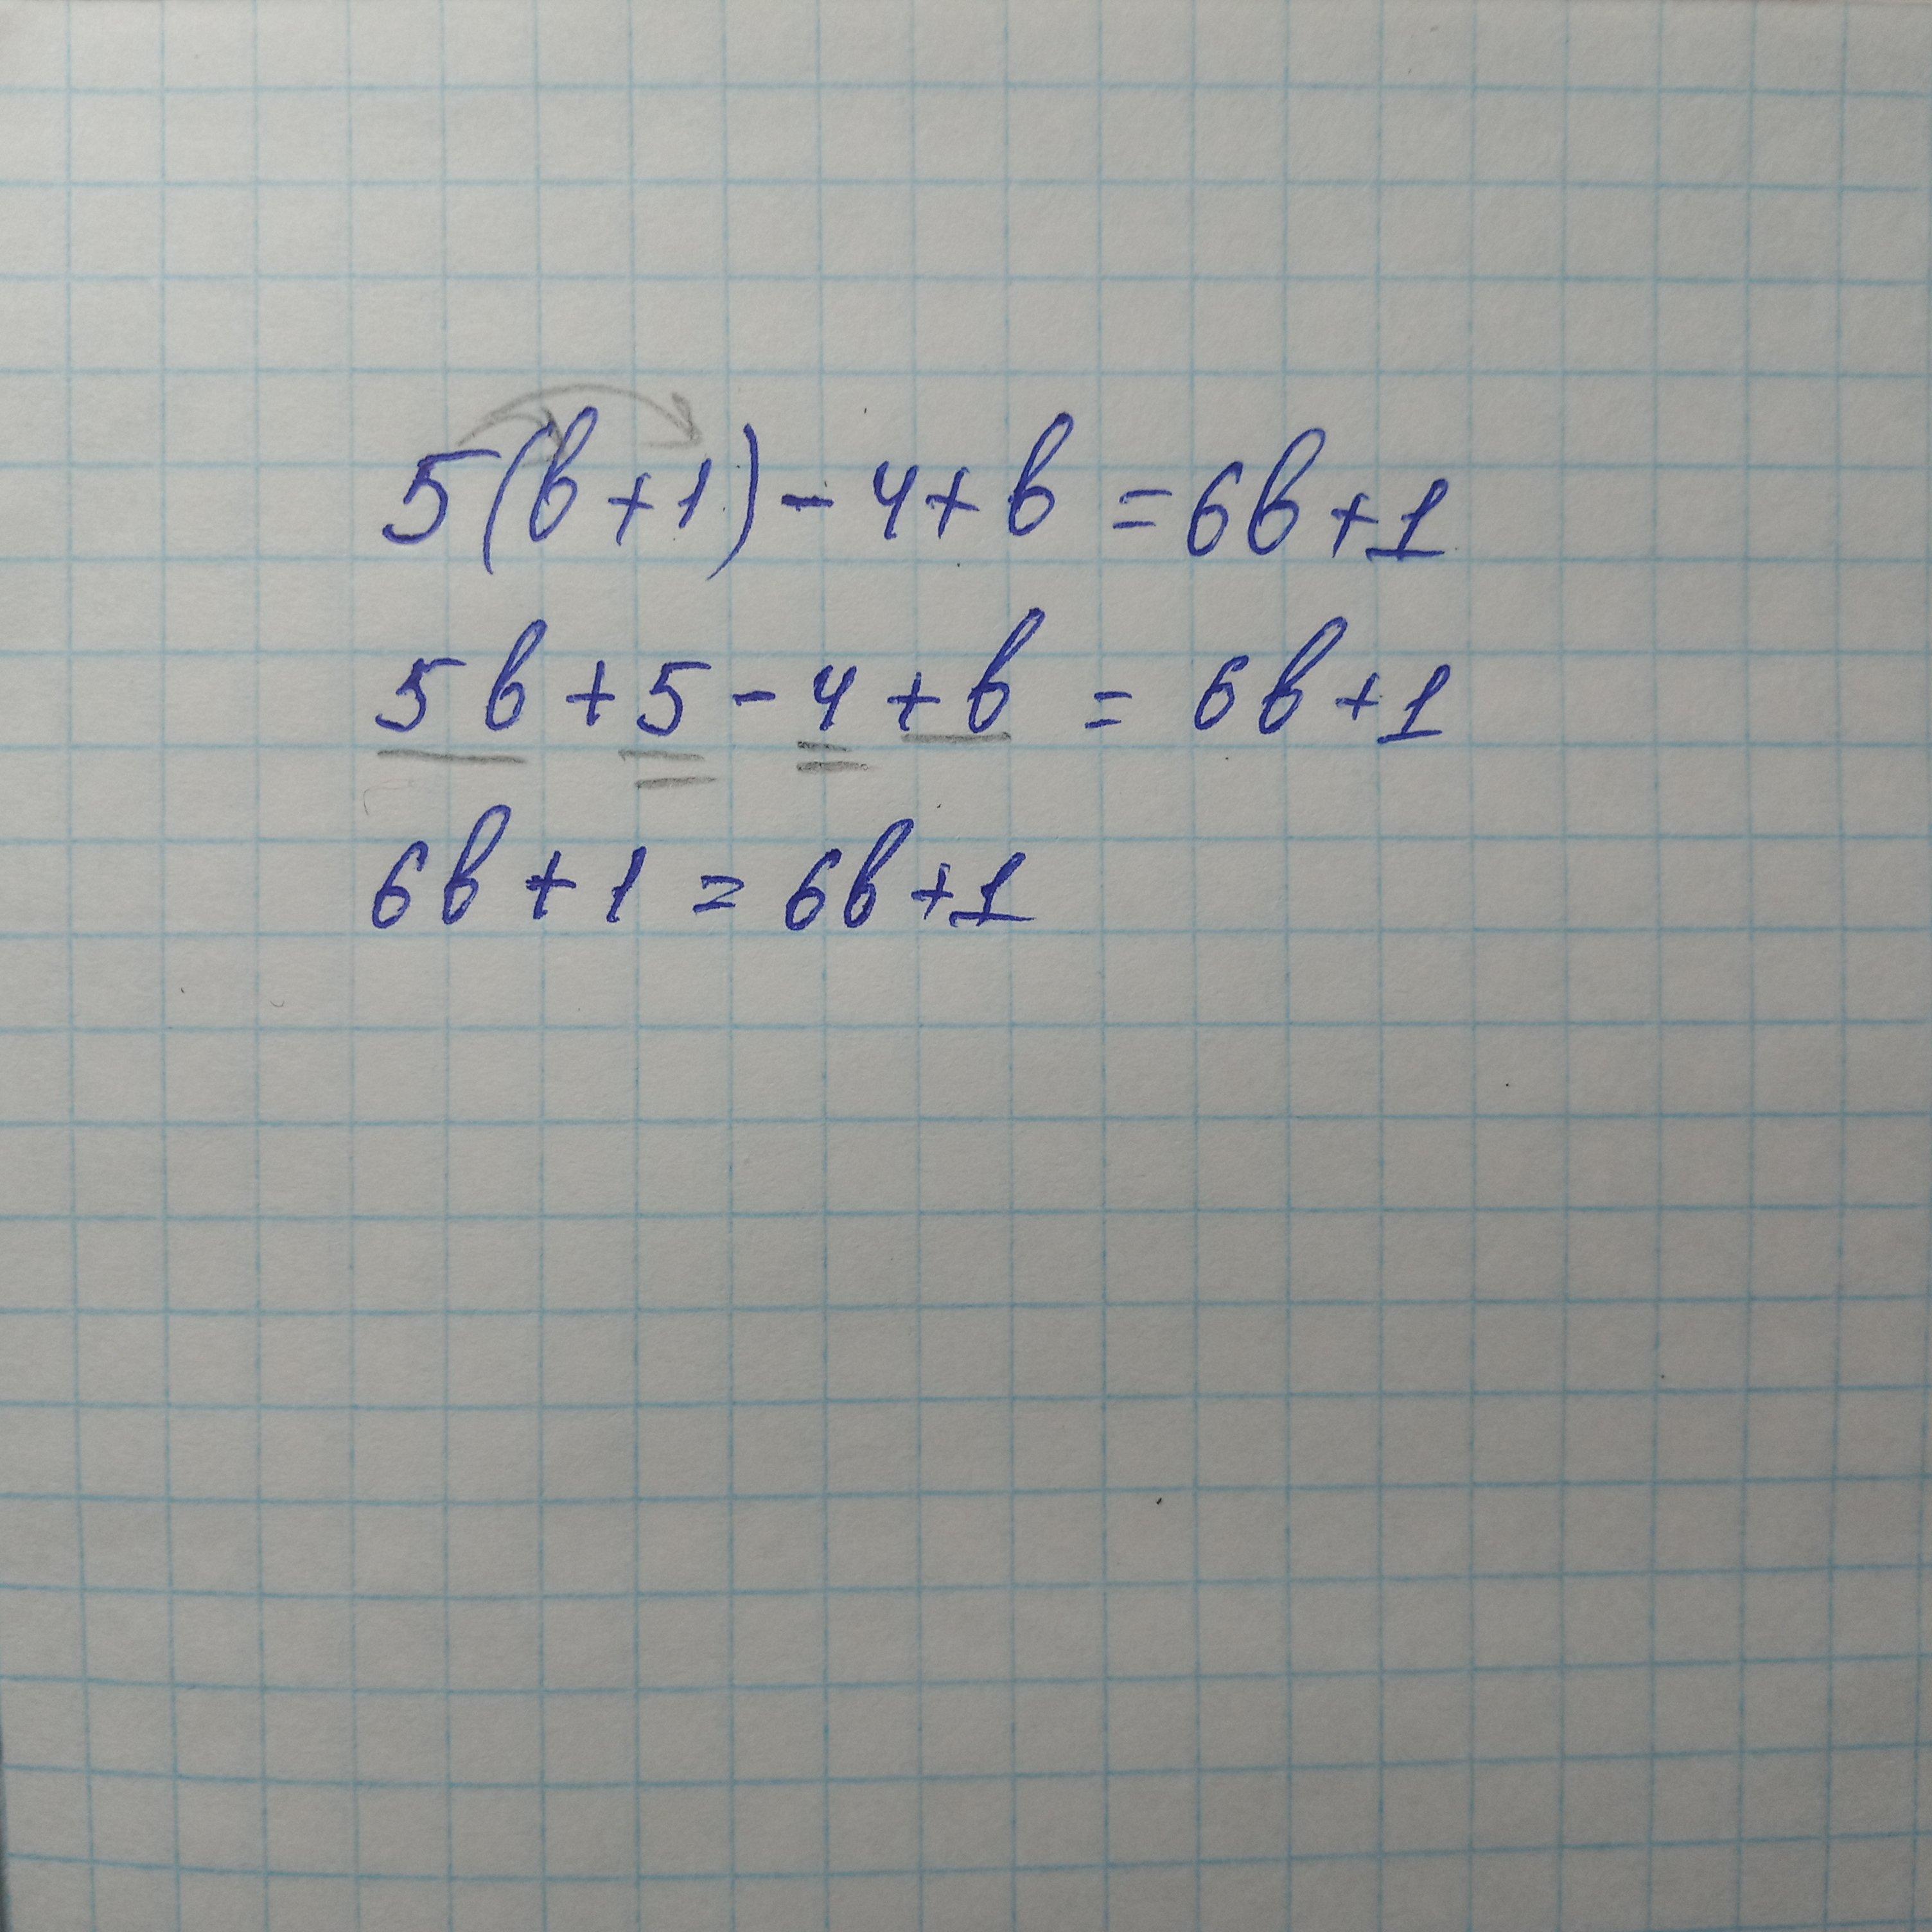 5(b+1)-4+b=6b+1
5b+5-4+b=6b+1
6b+1=6b+1